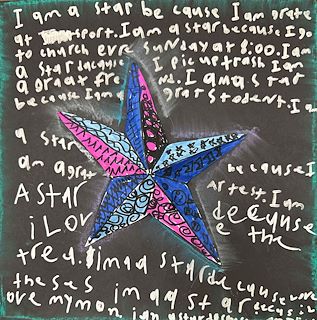 I am a star be cause I am grate
at sport. I am a star because I go
to church evre sunday at 8:00. I am
a star because I pic up trash I am
a graat fre me. I am a star
because I am a grat student. I a
a star
am a grat be cause I
A star artest. I am
i Lov because
trea. imaq a star be cause
the ses im aq star
ove my mom